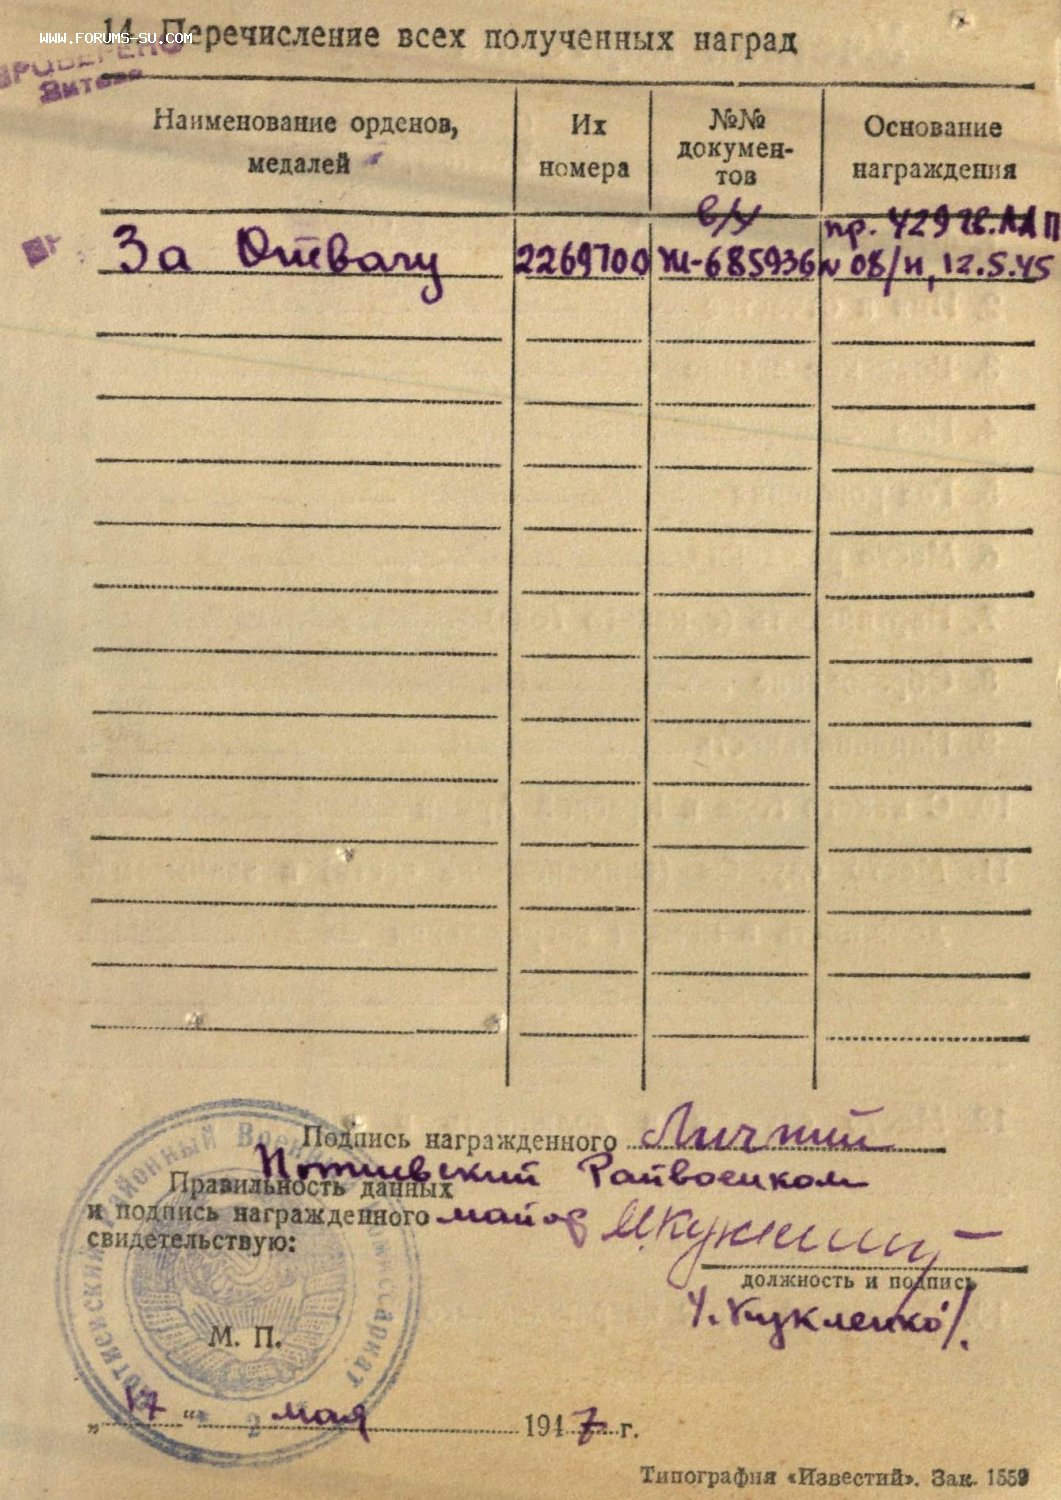 14. Перечисление всех полученных наград
www.forums-su.com
ПРОВЕРЕНО
Наименование орденов, медалей
Их номера
№№ документов
Основание награждения
б/у
пр. 429 гв. ААП
За Отвагу 2269700 Ж-685936 № 08/н, 12.5.45
Подпись награжденного
Райвоенком
Правильность данных
и подпись награжденного майор
свидетельствую:
должность и подпись
Кукленко/.
М. П.
„17“ мая 1947 г.
Типография «Известий». Зак. 1559